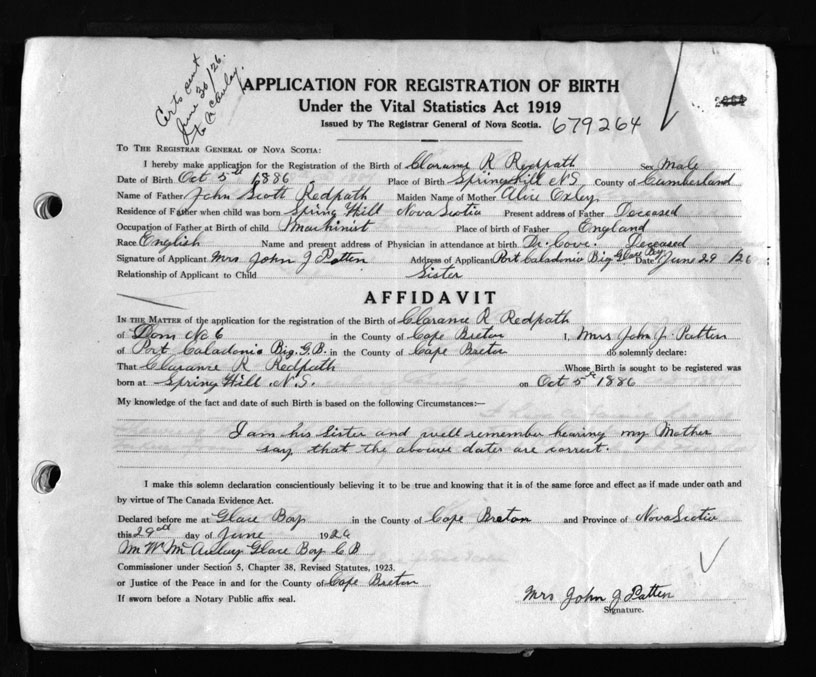 Certs sent
June 30/26.
to
APPLICATION FOR REGISTRATION OF BIRTH
Under the Vital Statistics Act 1919
Issued by The Registrar General of Nova Scotia. 679264
TO THE REGISTRAR GENERAL OF NOVA SCOTIA:
I hereby make application for the Registration of the Birth of Clarance R Redpath Sex Male
Date of Birth Oct 5th 1886 Place of Birth Spring Hill N.S. County of Cumberland
Name of Father John Scott Redpath Maiden Name of Mother Alice Oxley
Residence of Father when child was born Spring Hill Nova Scotia Present address of Father Deceased
Occupation of Father at Birth of child Machinist Place of birth of Father England
Race English Name and present address of Physician in attendance at birth Dr. Cove. Deceased
Signature of Applicant Mrs John J Patten Address of Applicant Port Caladonia Big Glace Bay Date June 29/26
Relationship of Applicant to Child Sister
AFFIDAVIT
IN THE MATTER of the application for the registration of the Birth of Clarance R Redpath
of Dom No 6 in the County of Cape Breton I, Mrs John J. Patten
of Port Caladonia Big. G.B. in the County of Cape Breton do solemnly declare:
That Clarance R Redpath Whose Birth is sought to be registered was
born at Spring Hill N.S. on Oct 5th 1886
My knowledge of the fact and date of such Birth is based on the following Circumstances:—
I am his Sister and well remember hearing my Mother
say that the above dates are correct.
I make this solemn declaration conscientiously believing it to be true and knowing that it is of the same force and effect as if made under oath and
by virtue of The Canada Evidence Act.
Declared before me at Glace Bay in the County of Cape Breton and Province of Nova Scotia
this 29th day of June 1926
Glace Bay C B
Commissioner under Section 5, Chapter 38, Revised Statutes, 1923.
or Justice of the Peace in and for the County of Cape Breton
If sworn before a Notary Public affix seal.
Mrs John J Patten
Signature.